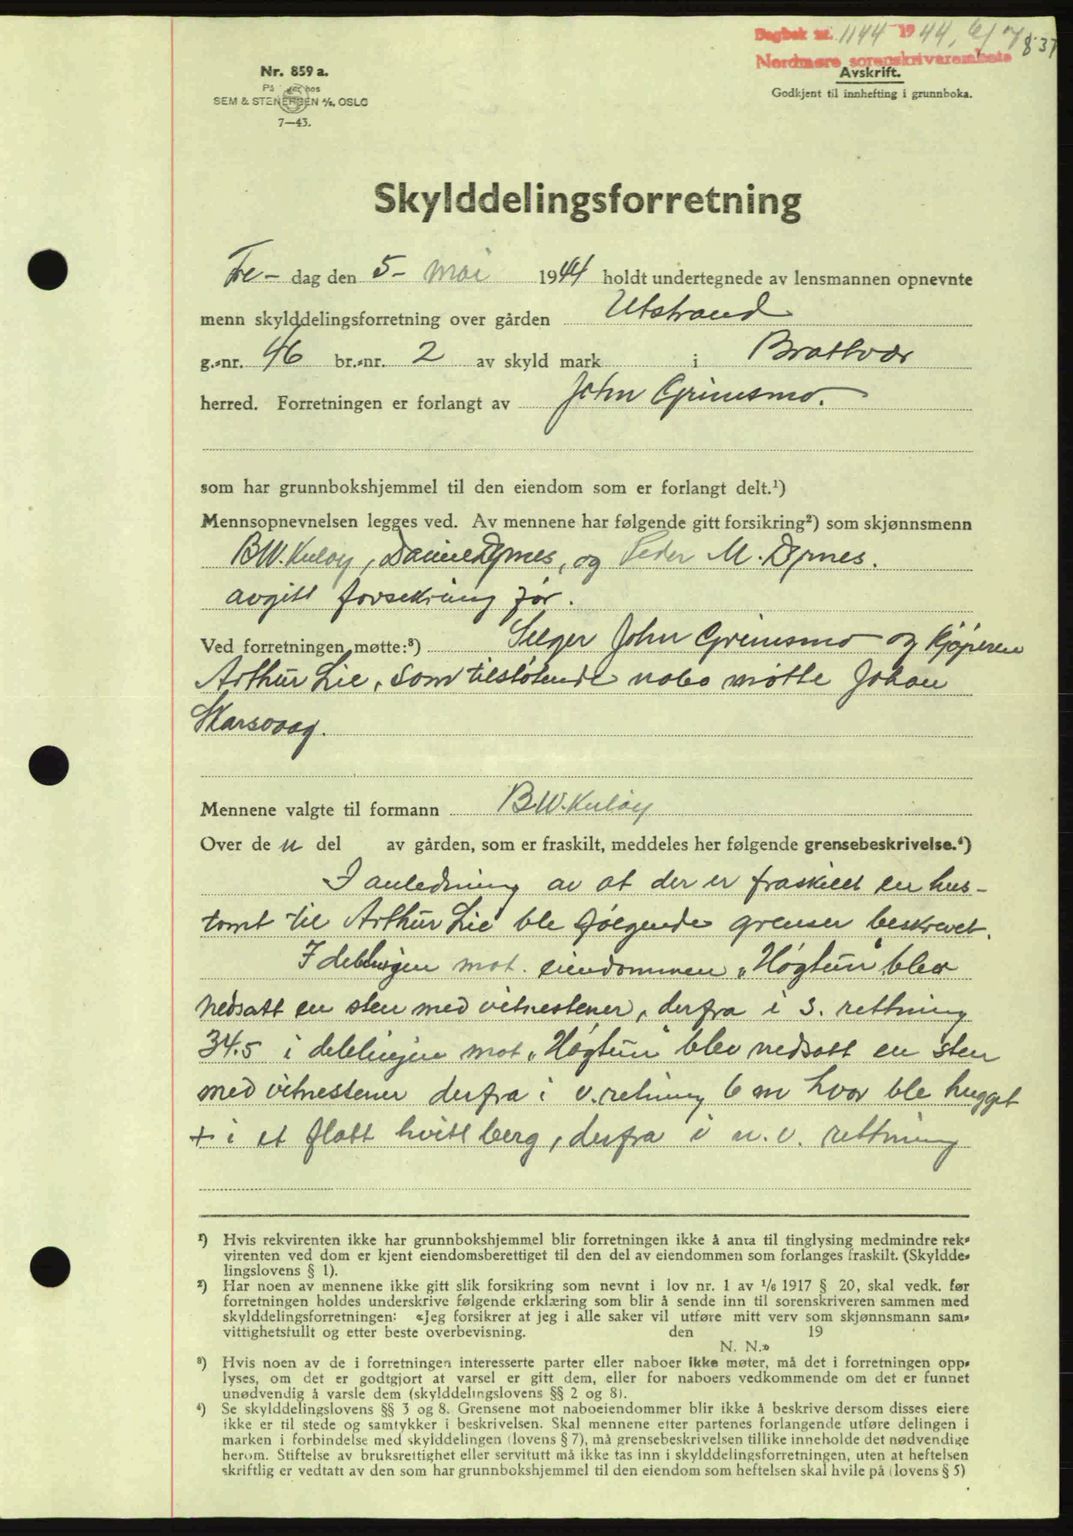 Dagbok nr. 1144 1944, 6/7
837
Nordmøre sorenskriverembete
Nr. 859 a.
På lager hos
SEM & STENERSEN A/S, OSLO
7—43.
Avskrift.
Godkjent til innhefting i grunnboka.
Skylddelingsforretning
Fre- dag den 5- mai 1944 holdt undertegnede av lensmannen opnevnte
menn skylddelingsforretning over gården Utstrand
g.-nr. 46 br.-nr. 2 av skyld mark i Brattvær
herred. Forretningen er forlangt av John Grimsmo.
som har grunnbokshjemmel til den eiendom som er forlangt delt.¹)
Mennsopnevnelsen legges ved. Av mennene har følgende gitt forsikring²) som skjønnsmenn
B.W. Kuløy, Daniel Dyrnes, og Peder M. Dyrnes.
avgitt forsikring før.
Ved forretningen møtte:³) Selger John Grimsmo og kjøperen
Arthur Lie, som tilstøtende nabo møtte Johan
Skarsvaag.
Mennene valgte til formann B.W. Kuløy
Over de n del av gården, som er fraskilt, meddeles her følgende grensebeskrivelse.⁴)
I anledning av at der er fraskilt en hus-
tomt til Arthur Lie ble følgende grenser beskrevet.
I delelinjen mot eiendommen „Høgtun" blev
nedsatt en sten med vitnestener, derfra i s. rettning
34.5 i delelinjen mot „Høgtun" blev nedsatt en sten
med vitnestener derfra i v. retning 6 m hvor ble hugget
+ i et flatt hvitt berg, derfra i n. v. rettning
¹) Hvis rekvirenten ikke har grunnbokshjemmel blir forretningen ikke å anta til tinglysing medmindre rek-
virenten ved dom er kjent eiendomsberettiget til den del av eiendommen som forlanges fraskilt. (Skyldde-
lingslovens § 1).
²) Har noen av mennene ikke gitt slik forsikring som nevnt i lov nr. 1 av 1/6 1917 § 20, skal vedk. før
forretningen holdes underskrive følgende erklæring som blir å sende inn til sorenskriveren sammen med
skylddelingsforretningen: «Jeg forsikrer at jeg i alle saker vil utføre mitt verv som skjønnsmann sam-
vittighetsfullt og etter beste overbevisning. den 19
N. N.»
³) Hvis noen av de i forretningen interesserte parter eller naboer ikke møter, må det i forretningen opp-
lyses, om det er godtgjort at varsel er gitt dem, eller for naboers vedkommende om det er funnet
unødvendig å varsle dem (skylddelingslovens §§ 2 og 8).
⁴) Se skylddelingslovens §§ 3 og 8. Grensene mot naboeiendommer blir ikke å beskrive dersom disses eiere
ikke er til stede og samtykker i beskrivelsen. Skal mennene etter partenes forlangende utføre delingen i
marken i forbindelse med skylddelingen (lovens § 7), må grensebeskrivelsen tillike inneholde det nødvendige
herom. Stiftelse av bruksrettighet eller servitutt må ikke tas inn i skylddelingsforretningen, uten at heftelsen
skriftlig er vedtatt av den som har grunnbokshjemmel til den eiendom som heftelsen skal hvile på (lovens § 5)